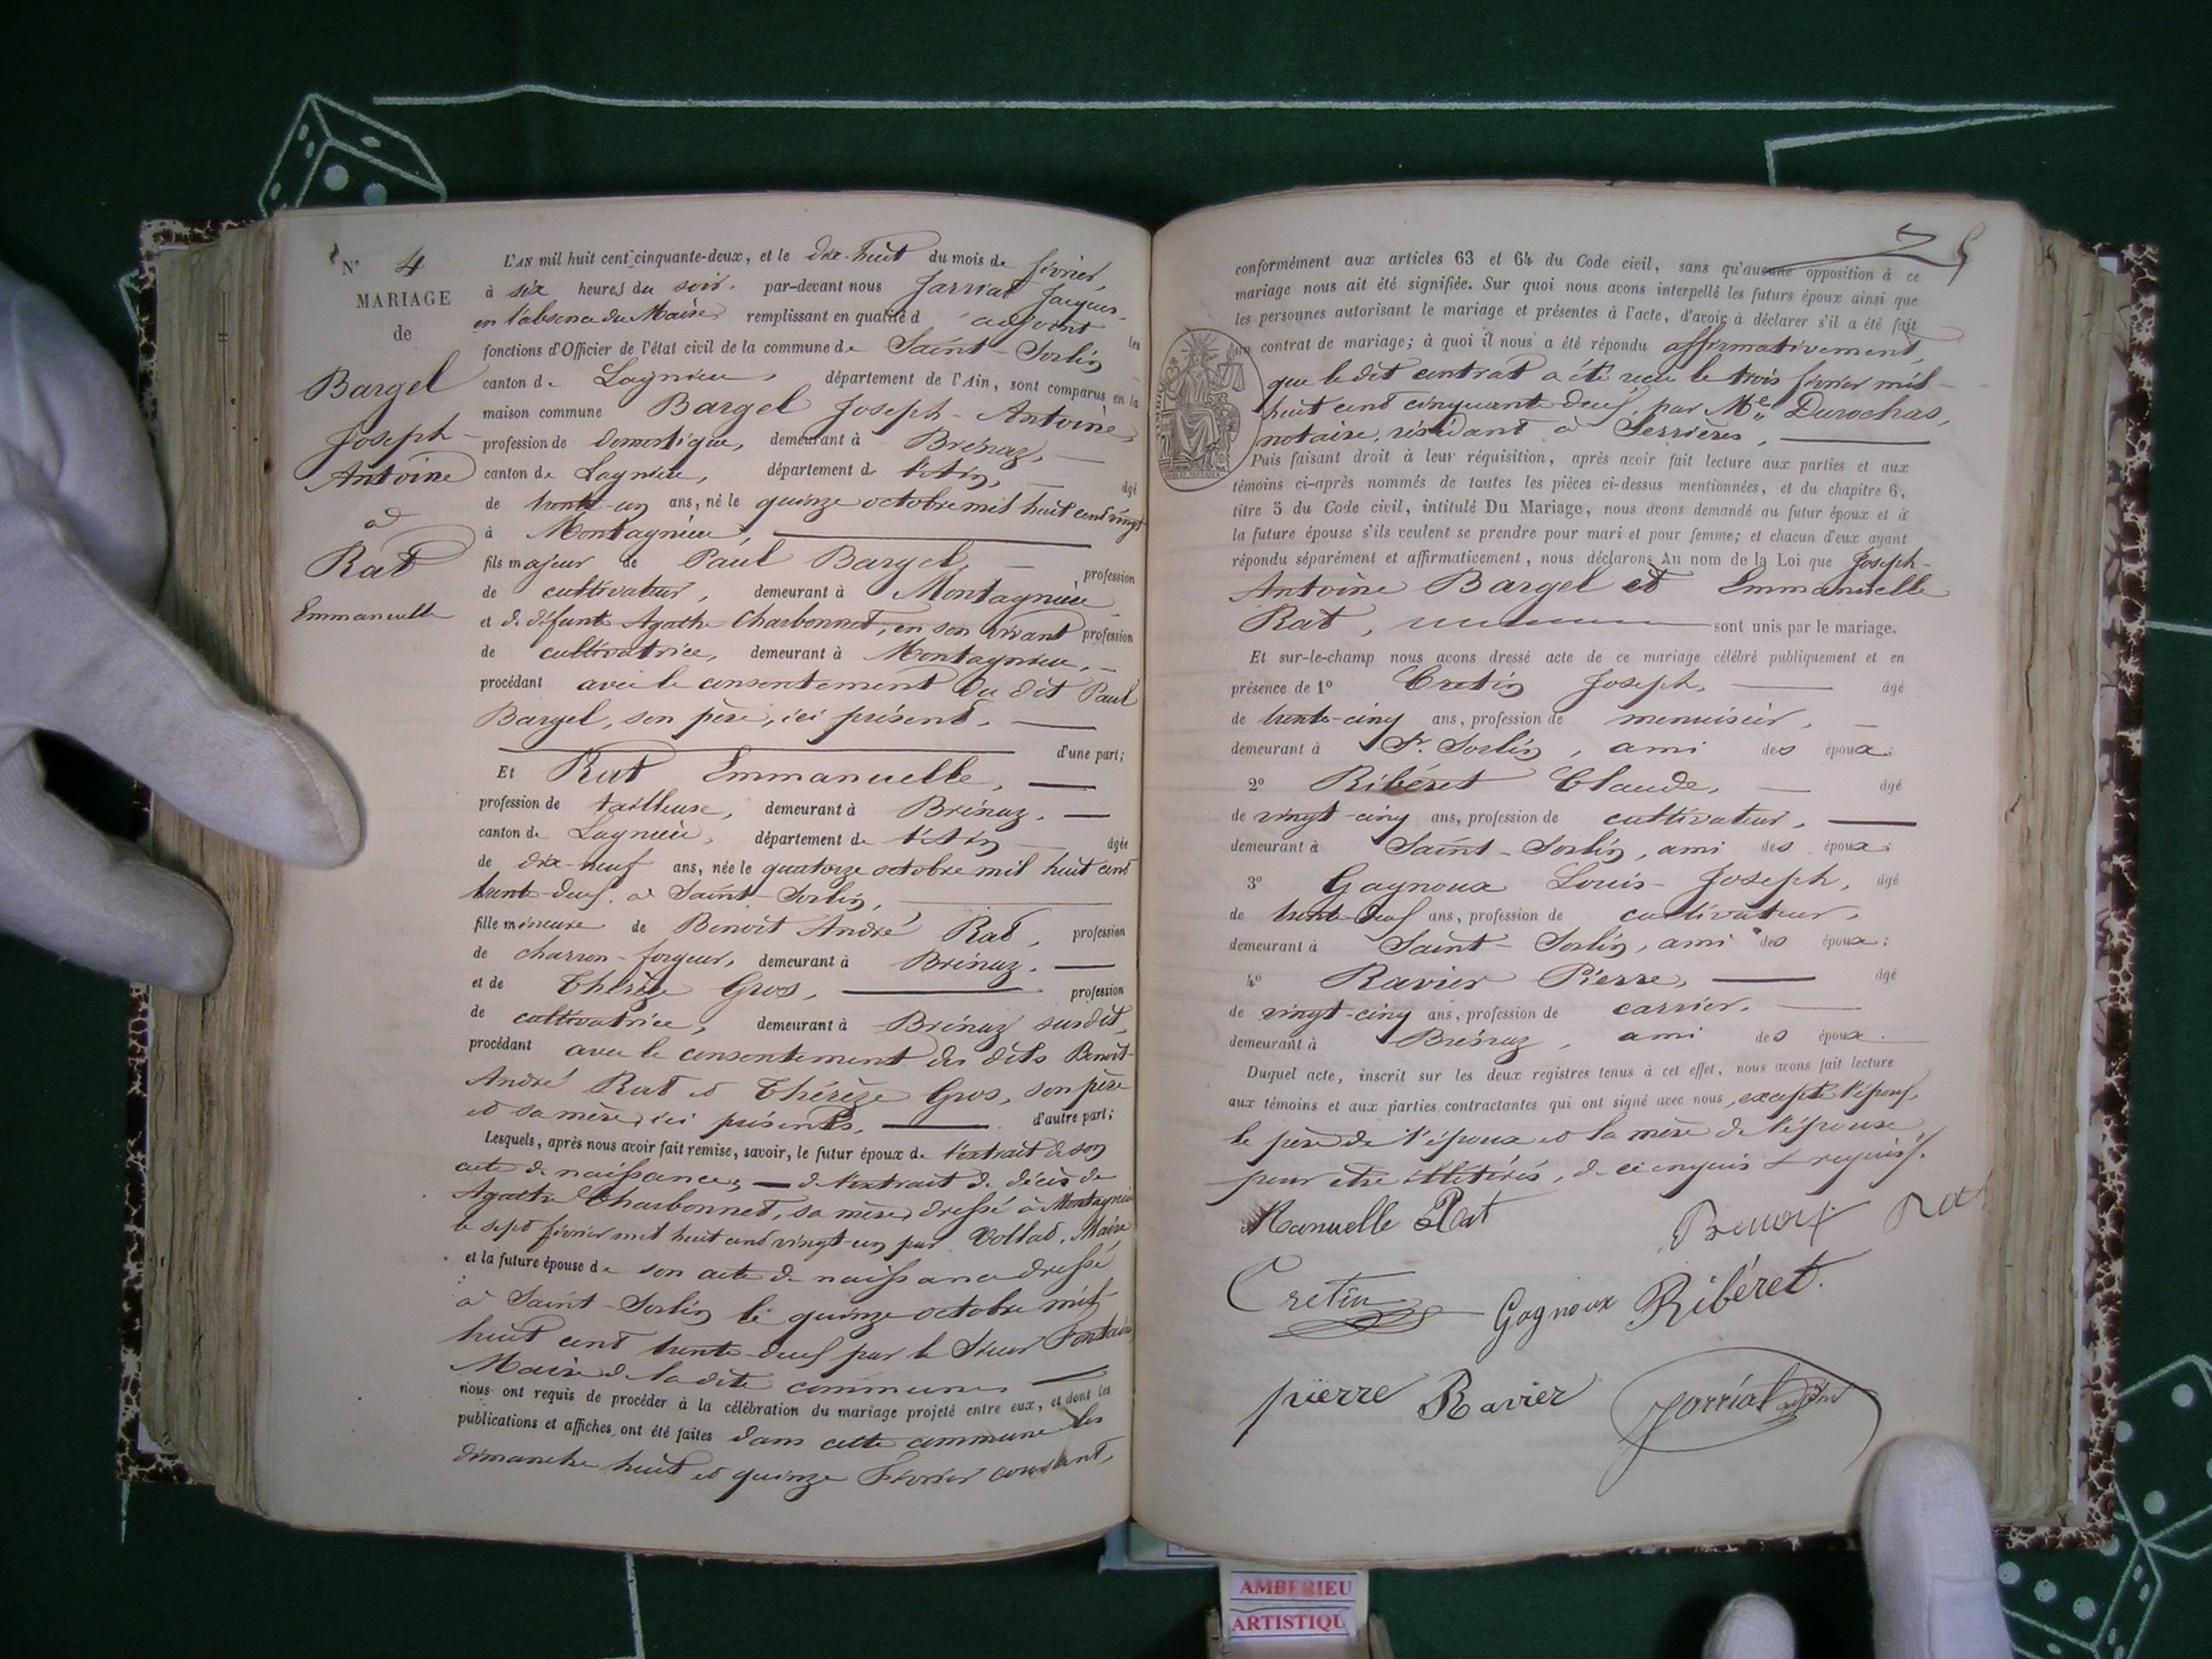 N° 4
MARIAGE
de
Bargel
Joseph-
Antoine
et
Rat
Emmanuelle
L'AN mil huit cent cinquante-deux, et le dix-huit du mois de février,
à six heures du soir, par-devant nous Jarriat Jacques,
en l'absence du Maire, remplissant en qualité d'adjoint les
fonctions d'Officier de l'état civil de la commune de Saint-Sorlin
canton de Lagnieu, département de l'Ain, sont comparus en la
maison commune Bargel Joseph-Antoine,
profession de domestique, demeurant à Brénaz,
canton de Lagnieu, département de l'Ain, âgé
de trente-un ans, né le quinze octobre mil huit cent vingt
à Montagnieu,
fils majeur de Paul Bargel, profession
de cultivateur, demeurant à Montagnieu
et de défunte Agathe Charbonnet, en son vivant profession
de cultivatrice, demeurant à Montagnieu,
procédant avec le consentement du dit Paul
Bargel, son père, ici présent,
d'une part;
Et Rat Emmanuelle,
profession de tailleuse, demeurant à Brénaz,
canton de Lagnieu, département de l'Ain âgée
de dix-neuf ans, née le quatorze octobre mil huit cent
trente-deux, à Saint-Sorlin,
fille mineure de Benoit André Rat, profession
de charron-forgeur, demeurant à Brénaz,
et de Thérèze Gros, profession
de cultivatrice, demeurant à Brénaz susdit,
procédant avec le consentement des dits Benoit-
André Rat et Thérèze Gros, son père
et sa mère, ici présents, d'autre part;
Lesquels, après nous avoir fait remise, savoir, le futur époux de l'extrait de son
acte de naissance, — de l'extrait de décès de
Agathe Charbonnet, sa mère, dressé à Montagnieu
le sept février mil huit cent vingt-un par Vollat, Maire
et la future épouse de son acte de naissance dressé
à Saint-Sorlin le quinze octobre mil-
huit cent trente-deux par le Sieur Fontaine
Maire de la dite commune
nous ont requis de procéder à la célébration du mariage projeté entre eux, et dont les
publications et affiches ont été faites dans cette commune les
dimanche huit et quinze Février courant,
25
conformément aux articles 63 et 64 du Code civil, sans qu'aucune opposition à ce
mariage nous ait été signifiée. Sur quoi nous avons interpellé les futurs époux ainsi que
les personnes autorisant le mariage et présentes à l'acte, d'avoir à déclarer s'il a été fait
un contrat de mariage; à quoi il nous a été répondu affirmativement,
que le dit contrat a été reçu le trois février mil-
huit cent cinquante-deux, par Me Durochas,
notaire, résidant à Serrières,
Puis faisant droit à leur réquisition, après avoir fait lecture aux parties et aux
témoins ci-après nommés de toutes les pièces ci-dessus mentionnées, et du chapitre 6,
titre 5 du Code civil, intitulé Du Mariage, nous avons demandé au futur époux et à
la future épouse s'ils veulent se prendre pour mari et pour femme; et chacun d'eux ayant
répondu séparément et affirmativement, nous déclarons Au nom de la Loi que Joseph-
Antoine Bargel et Emmanuelle
Rat, sont unis par le mariage.
Et sur-le-champ nous avons dressé acte de ce mariage célébré publiquement et en
présence de 1° Cretin Joseph, âgé
de trente-cinq ans, profession de menuisier,
demeurant à St. Sorlin, ami des époux;
2° Ribéret Claude, âgé
de vingt-cinq ans, profession de cultivateur,
demeurant à Saint-Sorlin, ami des époux;
3° Gagnoux Louis-Joseph, âgé
de trente-deux ans, profession de cultivateur,
demeurant à Saint-Sorlin, ami des époux;
4° Ravier Pierre, âgé
de vingt-cinq ans, profession de carrier,
demeurant à Brénaz, ami des époux.
Duquel acte, inscrit sur les deux registres tenus à cet effet, nous avons fait lecture
aux témoins et aux parties contractantes qui ont signé avec nous, excepté l'époux,
le père de l'époux et la mère de l'épouse
pour être illétérés, de ce enquis & requis.
Manuelle Rat Benoit Rat
Cretin Gagnoux Ribéret.
pierre Ravier Jarriat adjoint
AMBERIEU
ARTISTIQU